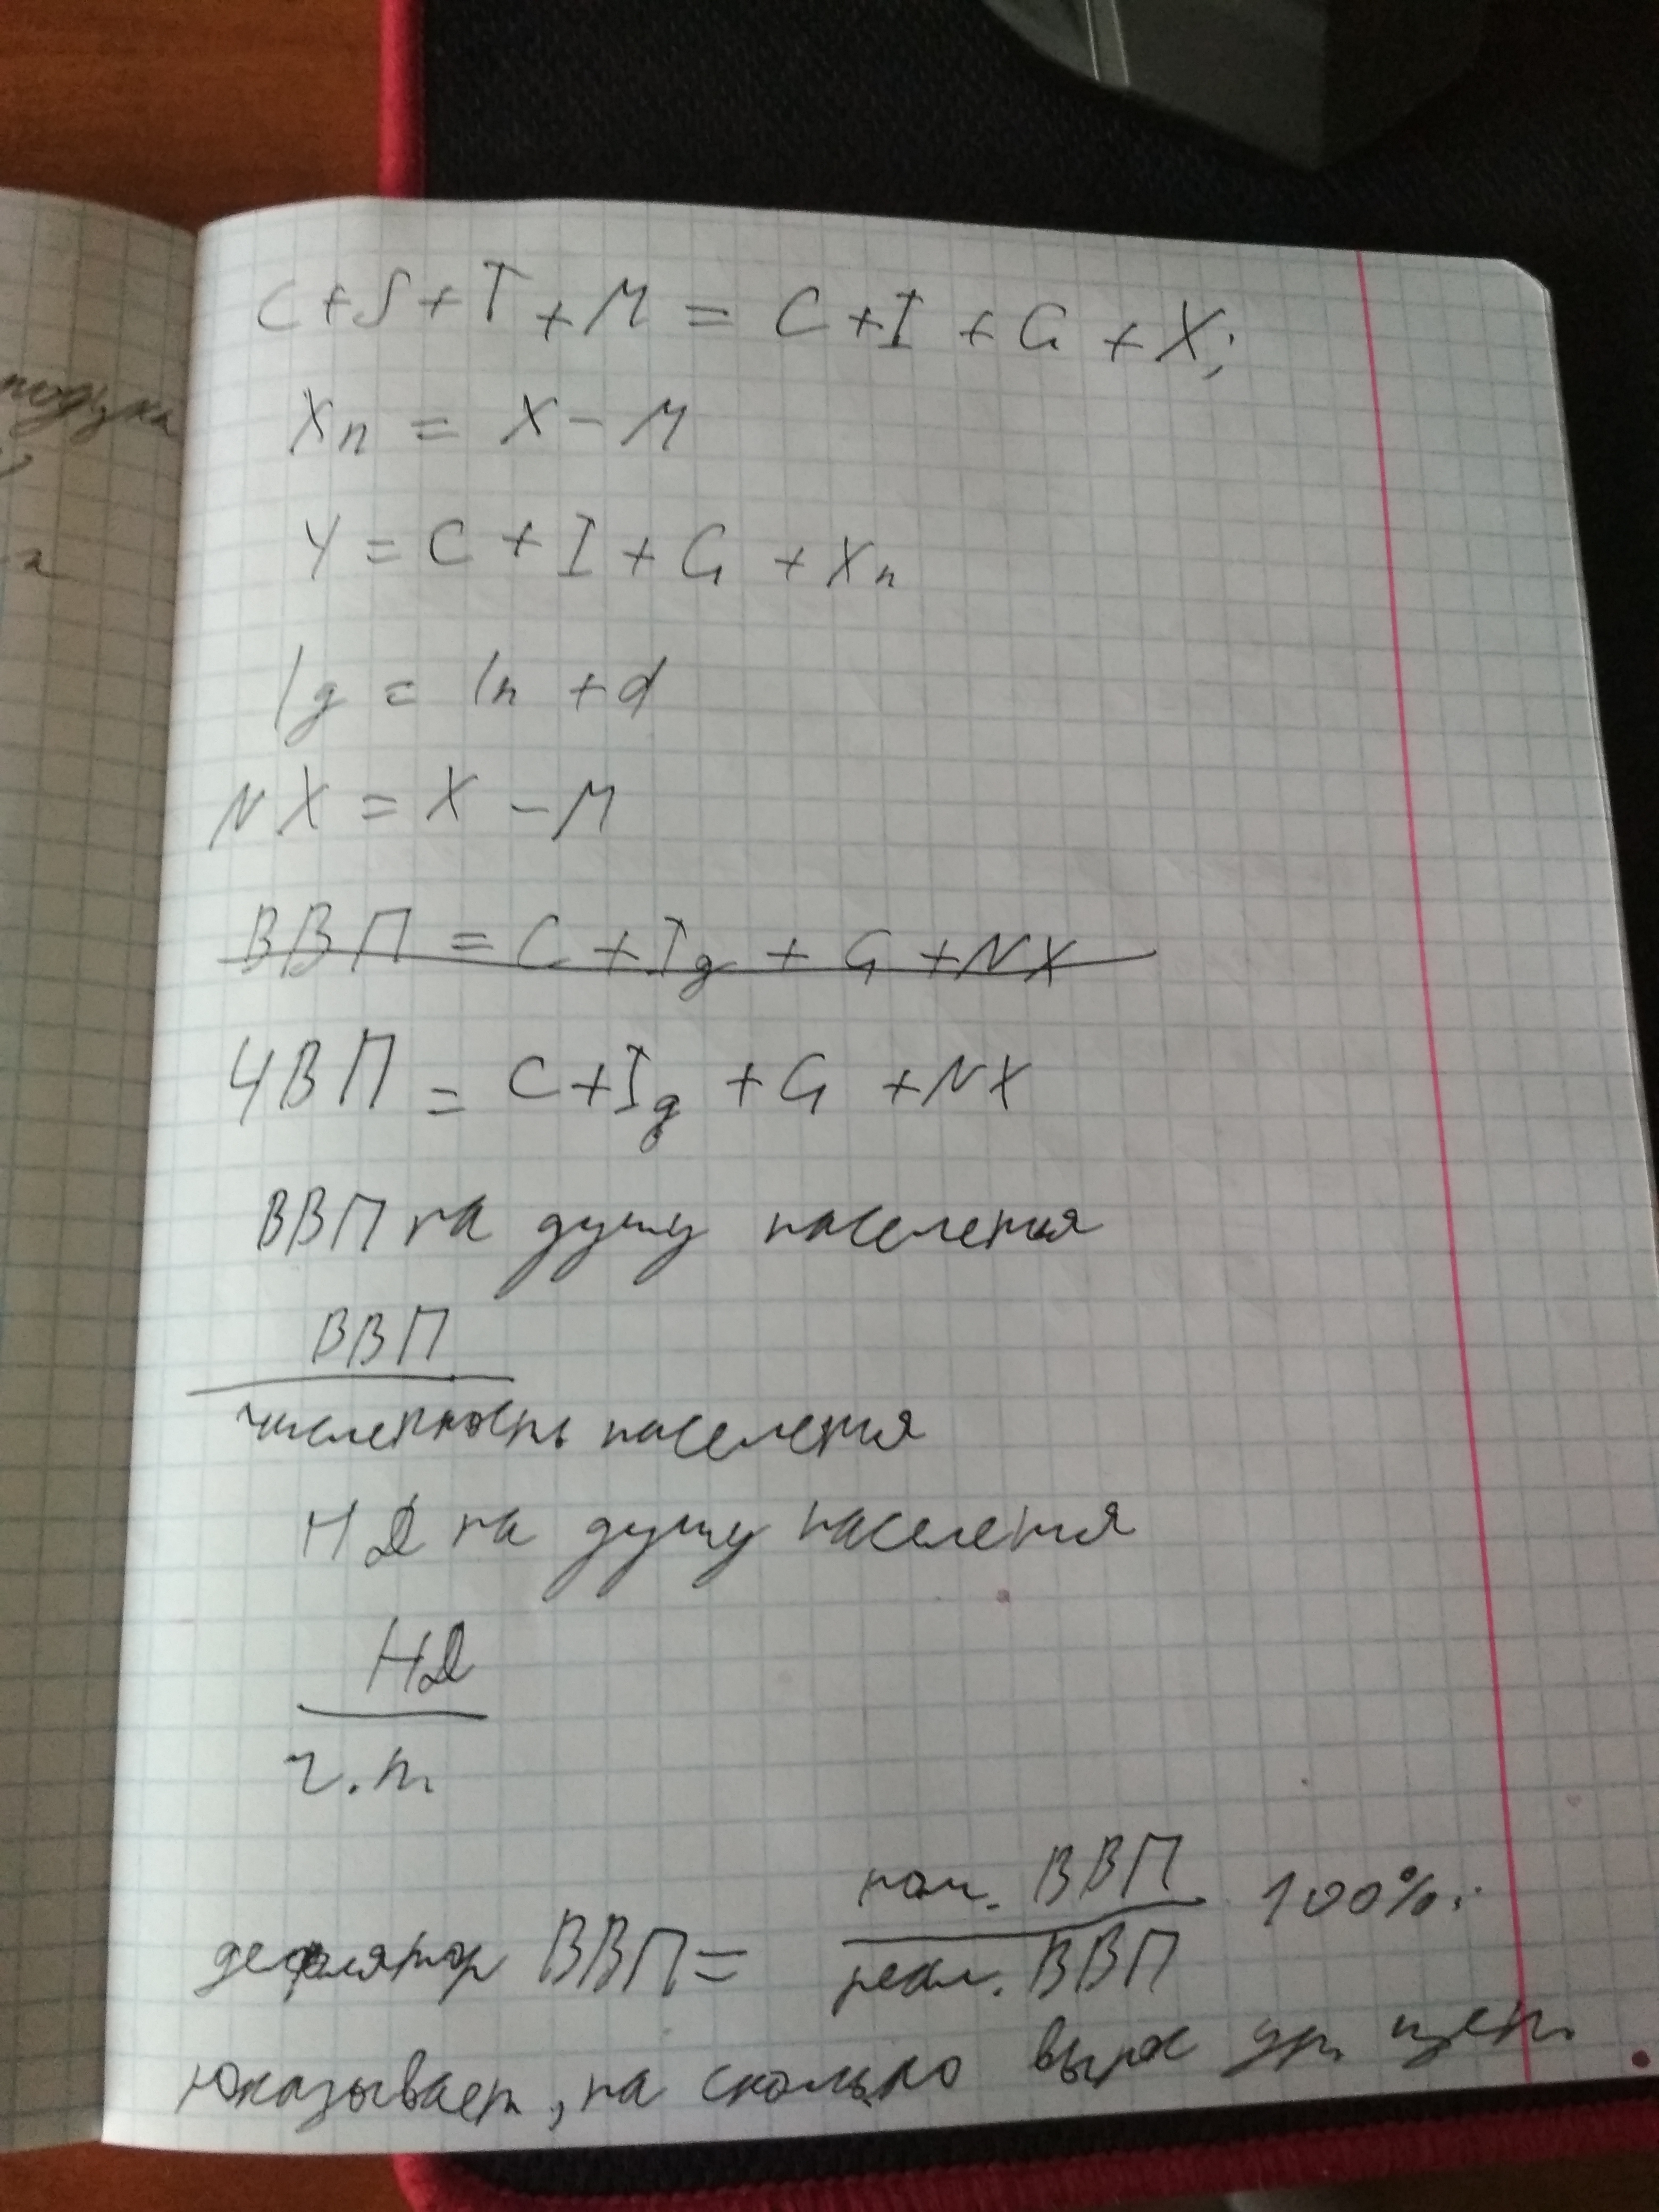 подука
C + S + T + M = C + I + G + X;
Xn = X - M
Y = C + I + G + Xn
Ig = In + d
NX = X - M
ВВП = C + Ig + G + NX
ЧВП = C + Ig + G + NX
ВВП на душу населения
ВВП
численность населения
НД на душу населения
НД
ч.н.
ном. ВВП
дефлятор ВВП = 100%.
реал. ВВП
показывает, на сколько вырос ур. цен.